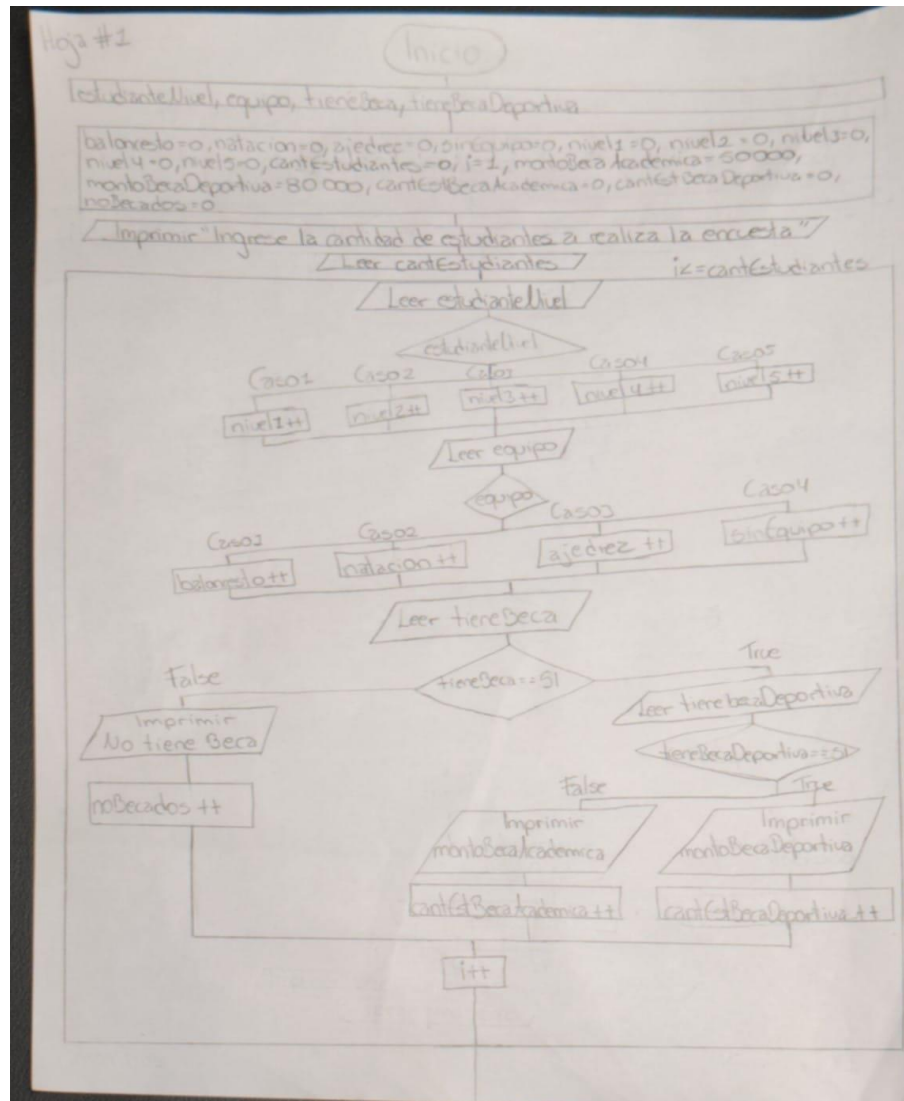 Hoja #1
Inicio
estudianteNivel, equipo, tieneBeca, tieneBecaDeportiva
balonresto=0, natacion=0, ajedrez=0, sinEquipo=0, nivel1=0, nivel2=0, nivel3=0,
nivel4=0, nivel5=0, cantEstudiantes=0, i=1, montoBecaAcademica=50000,
montoBecaDeportiva=80000, cantEstBecaAcademica=0, cantEstBecaDeportiva=0,
noBecados=0
Imprimir "Ingrese la cantidad de estudiantes a realiza la encuesta"
Leer cantEstudiantes
i<=cantEstudiantes
Leer estudianteNivel
estudianteNivel
Caso1 Caso2 Caso3 Caso4 Caso5
nivel1++ nivel2++ nivel3++ nivel4++ nivel5++
Leer equipo
equipo
Caso1 Caso2 Caso3 Caso4
balonesto++ natacion++ ajedrez++ sinEquipo++
Leer tieneBeca
tieneBeca==SI
False True
Imprimir
No tiene Beca
Leer tienebecaDeportiva
tieneBecaDeportiva==SI
noBecados++
False True
Imprimir
montoBecaAcademica
Imprimir
montoBecaDeportiva
cantEstBecaAcademica++ cantEstBecaDeportiva++
i++